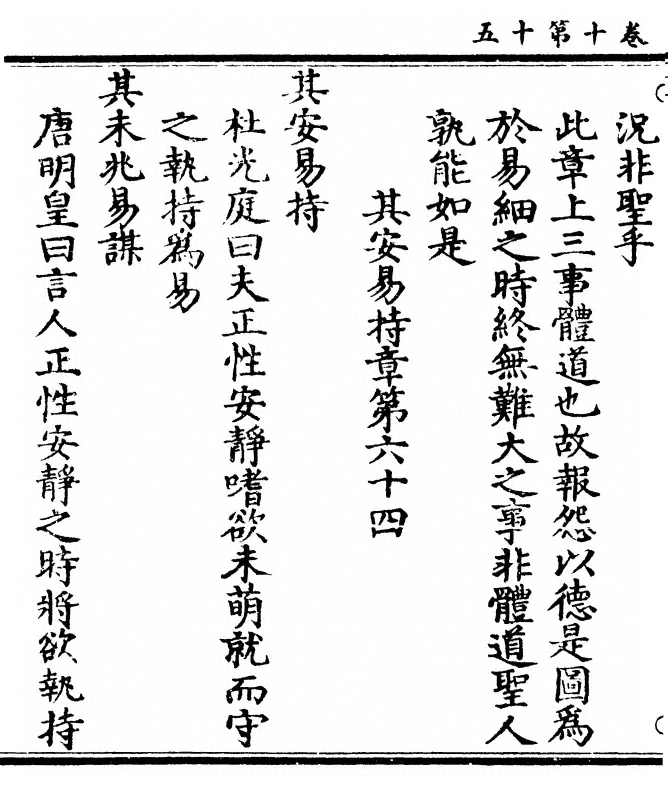 卷十第十五
況非聖乎
此章上三事體道也故報怨以德是圖爲
於易細之時終無難大之事非體道聖人
孰能如是
其安易持章第六十四
其安易持
杜光庭曰夫正性安靜嗜欲未萌就而守
之執持爲易
其未兆易謀
唐明皇曰言人正性安靜之時將欲執持